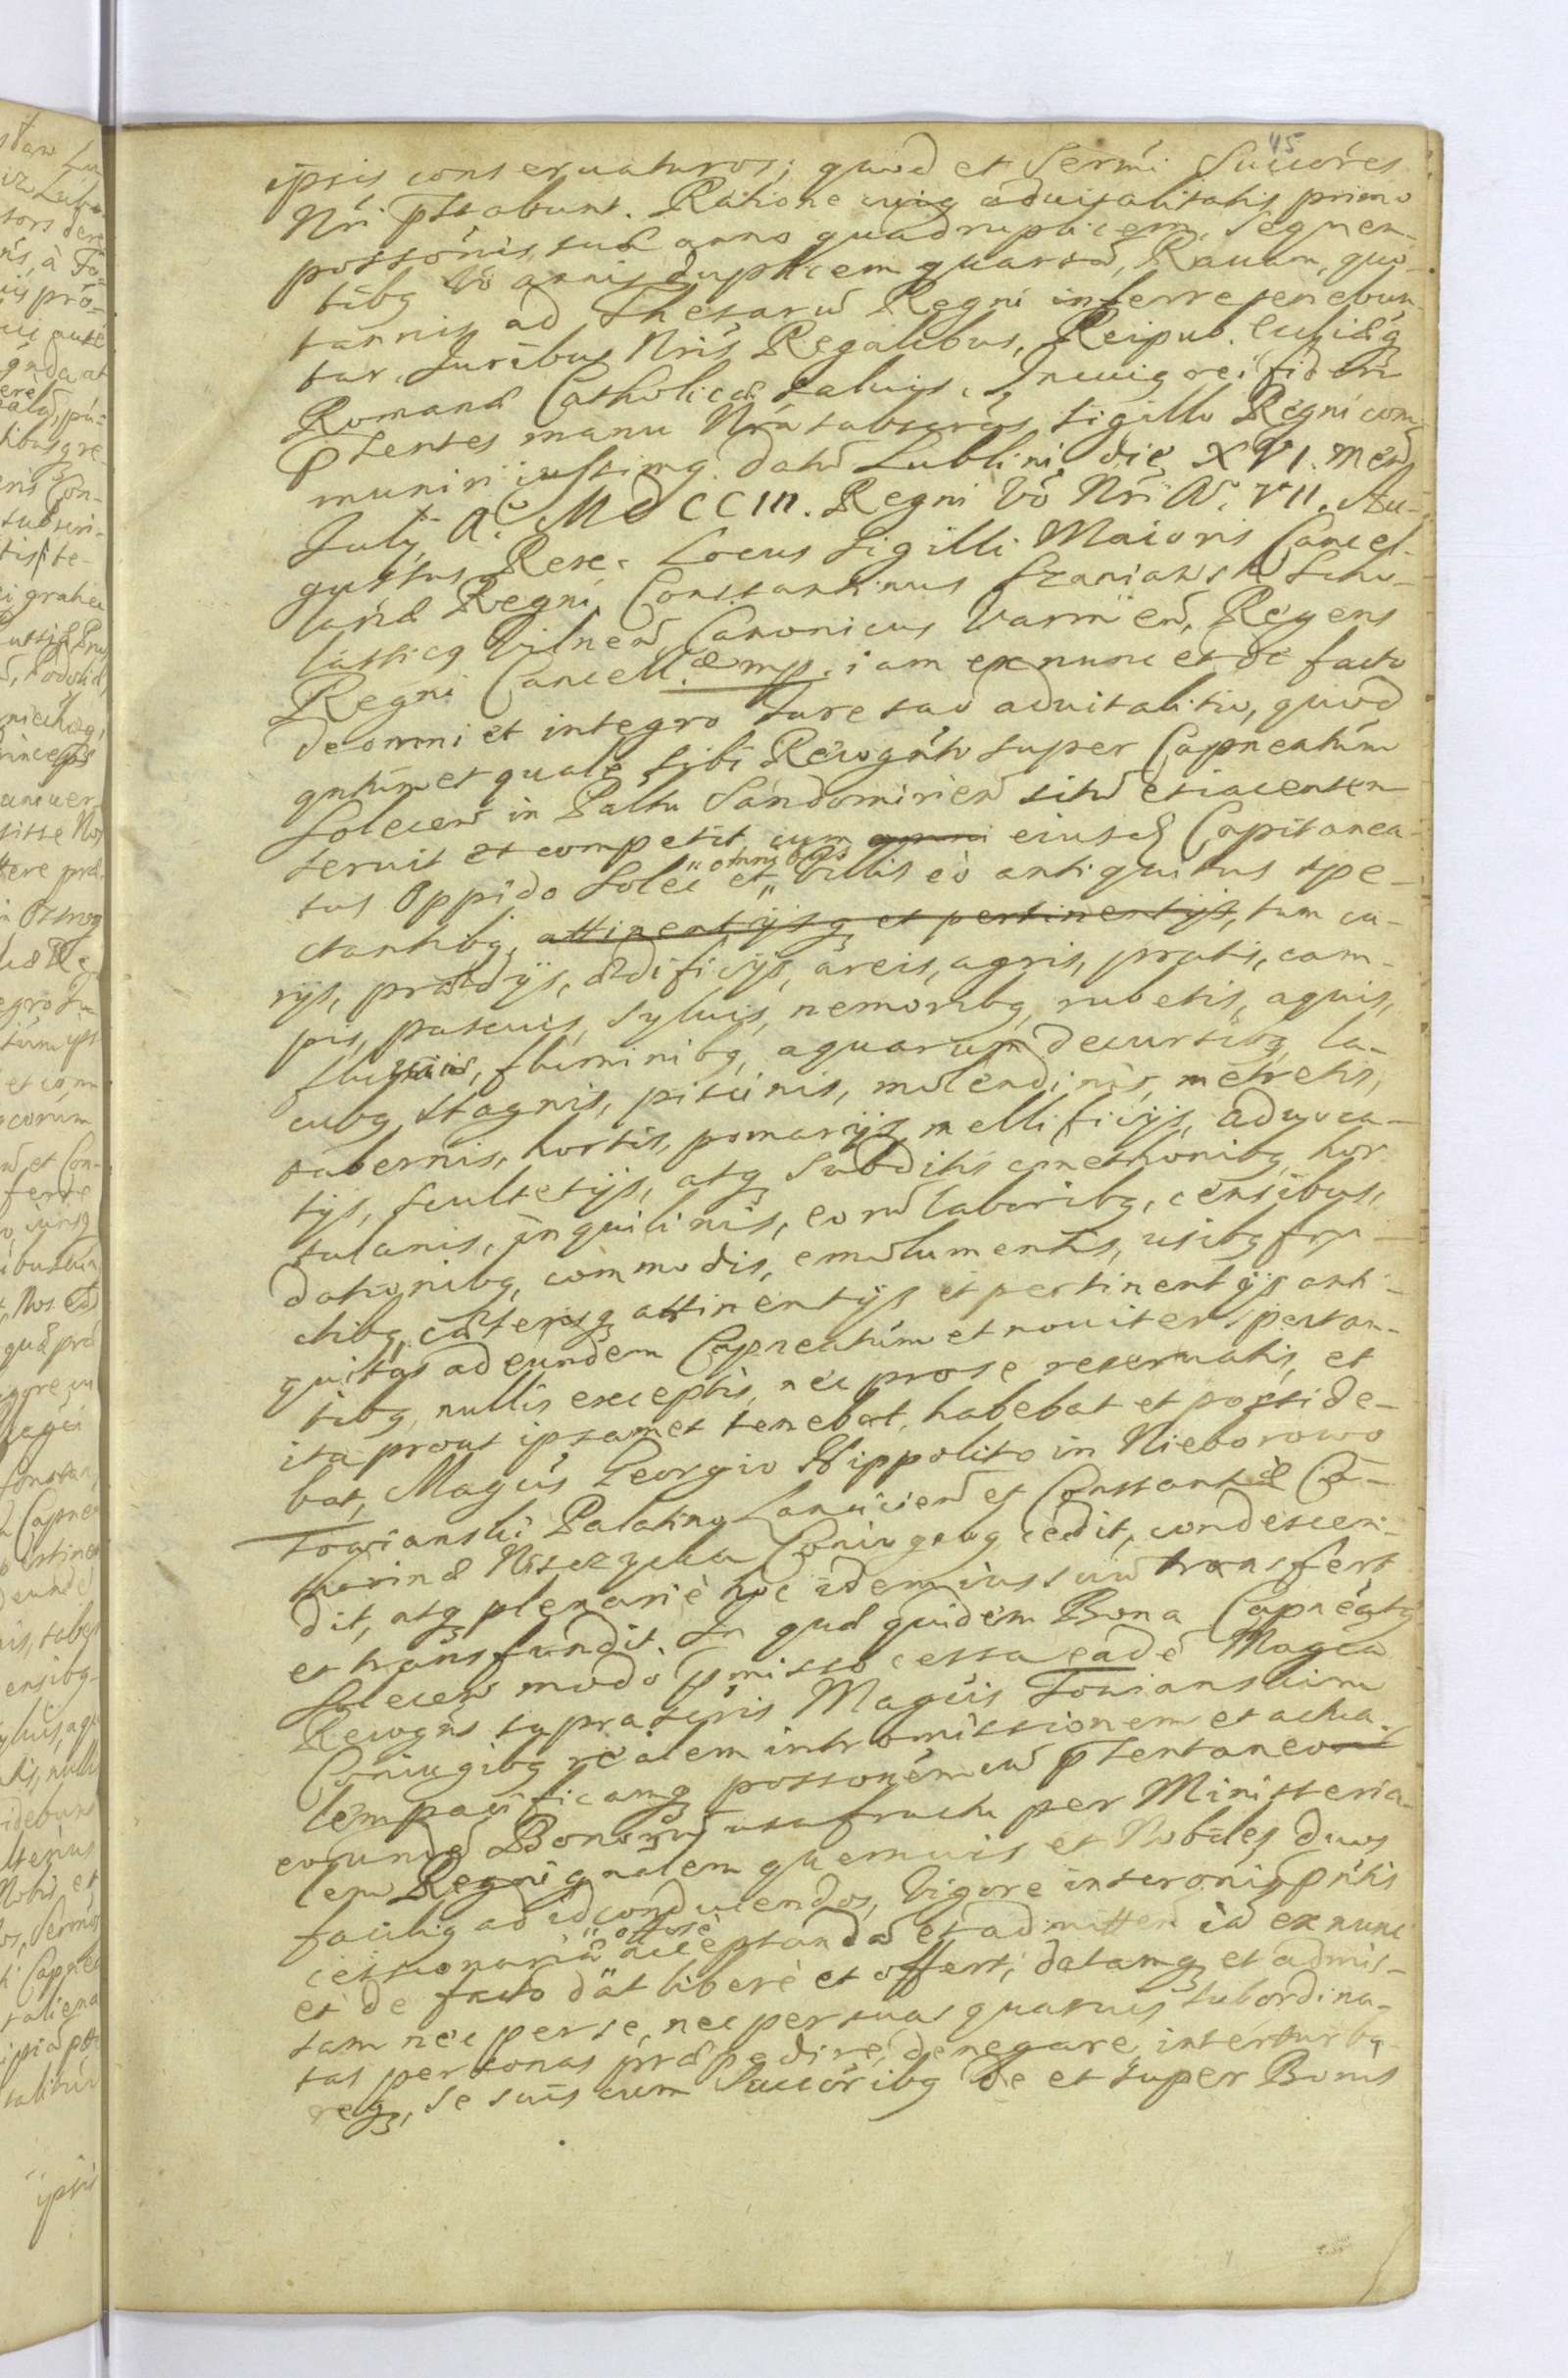 45
ipsis conseruaturos; quod et Sermi Succores
Nri pstabunt. Ratione cuig aduitalitatis primo
possonis, suae anno quadruplicem, sequen-
tibq vo annis duplicem quartam, Rauam, quo-
tannis ad Thesarum Regni inferre tenebun-
tur. Juribus Nris Regalibus, Reipub. Eccliaeq
Romanae Catholicae saluis. In cuig rei fidem
Pntes manu Nra subscras, sigillo Regni com-
muniri iussimg. Datum Lublini die XVI. Mens
July A. MDCCIII. Regni vo Nri Ao. VII. Au-
gustus Rex. Locus Sigilli Maioris Cancel-
lariae Regni, Constantinus Szaniawski Scho-
lasticg Vilnen, Canonicus Varmien, Regens
Regni Cancell. mp. iam ex nunc et de facto
de omni et integro Jure suo aduitalitio, quod
qntum et quale sibi Recognti super Capneatum
Solecen in Paltu Sandomirien situm et iacentem
seruit et competit, cum omni eiusd Capitanea-
tus Oppido Solec et omnibus villis eo antiquitus spe-
ctantibq, attinentijsq et pertinentijs, tum cu-
rijs, praedijs, aedificijs, areis, agris, pratis, cam-
pis, pascuis, syluis, nemoribq, rubetis, aquis,
fluuiis, fluminibq, aquarum decursibq, la-
cubq, stagnis, piscinis, molendinis, metretis,
tabernis, hortis, pomarijs, mellificijs, aduoca-
tijs, scultetijs, atq Subditis cmethonibq, hor-
tulanis, inquilinis, eorum laboribq, censibus,
dationibq, commodis, emolumentis, usibq fru-
ctibq, caeterisq attinentijs et pertinentijs anti-
quitus ad eundem Capneatum et nouiter spectan-
tibq, nullis exceptis, nec pro se reseruatis, et
ita prout ipsamet tenebat, habebat et posside-
bat, Magcis Georgio Hippolito in Nieborowo
Towianski Palating Lancicien et Constantiae Ca-
tharinae Niszczycka Coniugibq cedit, condescen-
dit, atq plenarie hoc idem ius suum transfert
et transfundit. In quae quidem Bona Capneatg
Solecen modo pmisso cessa eade Magca
Recogns suprascris Magcis Towianskim
Coniugibq realem intromissionem et actua-
lem pacificamq possonem cum pstentaneo
eorunde Bonorum usufructu per Ministeria-
lem Regni gnalem quemuis et Nobiles duos
facilig ad id conducendos, vigore inscronis pntis
cessionariae offose acceptandam et admitten ia ex nunc
et de facto dat libere et offert, datamq et admis-
sam nec per se, nec per suas quasuis subordina-
tas personas praepedire, denegare, interturba-
req, se suis cum Succoribq de et super Bonis